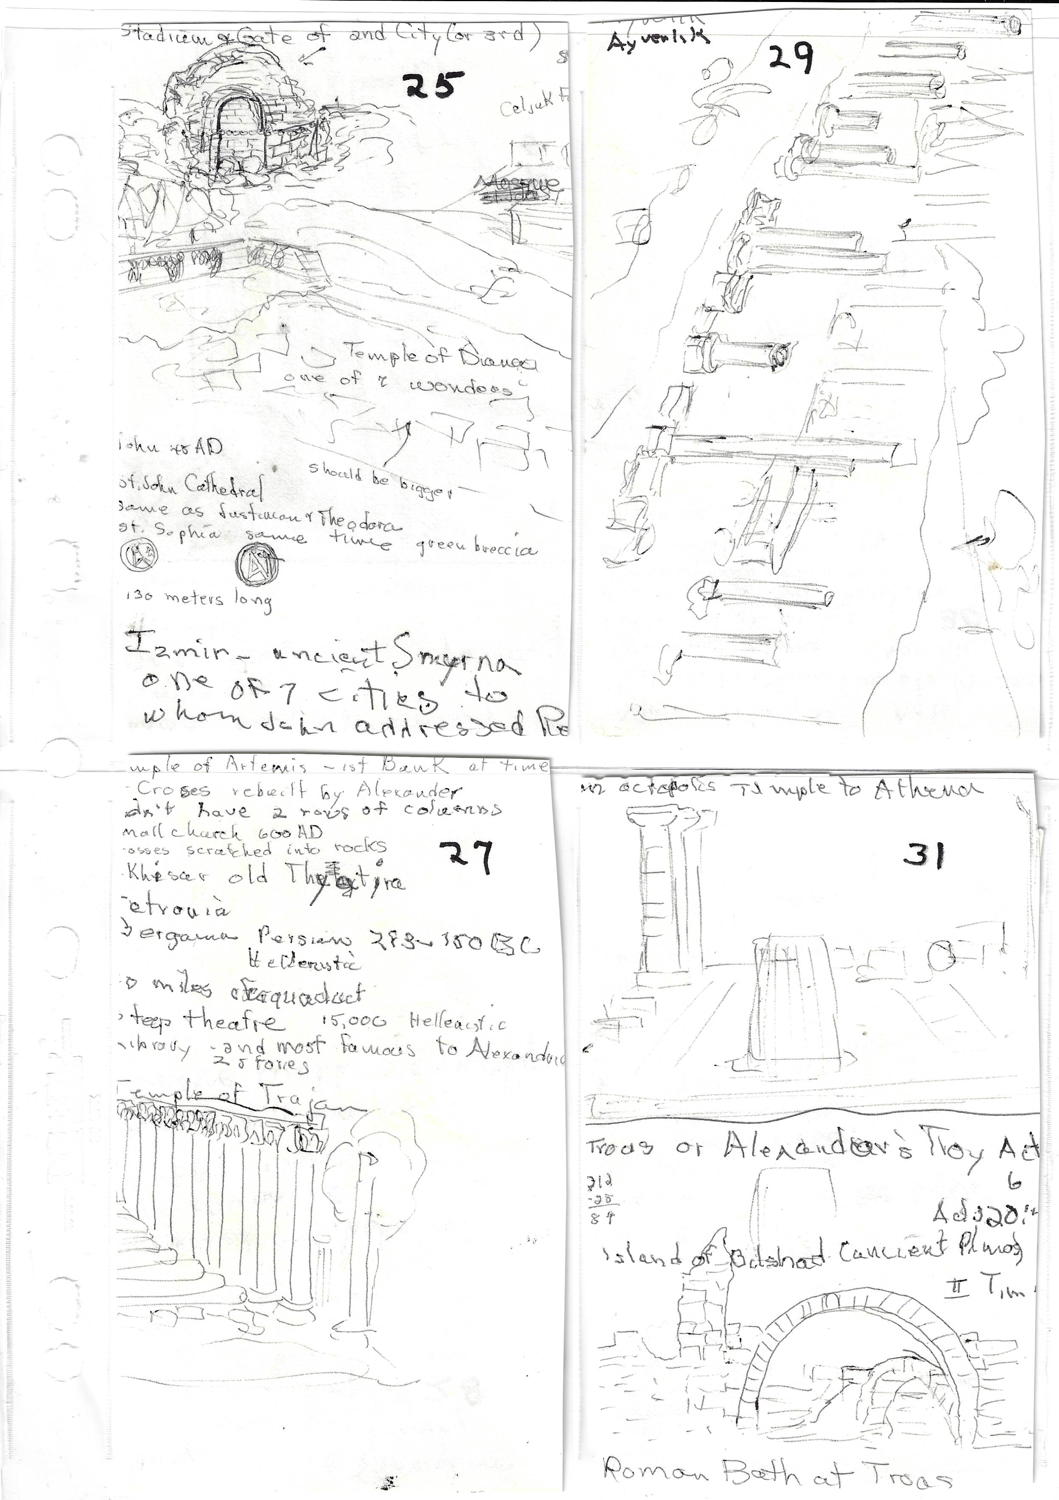 Stadium & Gate of 2nd City (or 3rd)
25
Mosque
Temple of Diana
one of 7 wonders
John AD
should be bigger
St. John Cathedral
same as Justinian & Theodora
St. Sophia same time green breccia
130 meters long
Izmir - ancient Smyrna
one of 7 cities to
whom John addressed Re
Ayvenlik
29
mple of Artemis - 1st Bank at time
Croses rebuilt by Alexander
dn't have 2 rows of columns
mall church 600 AD
osses scratched into rocks
27
Khisar old Thyatira
etrouia
Bergama Persian 283-150 BC
Hellenistic
0 miles of aquaduct
steep theatre 15,000 Helleaistic
Library - 2nd most famous to Alexandria
2 stories
Temple of Trajan
acropolis Temple to Athena
31
Troas or Alexander's Troy Act
6
212
-25
84
Acts 20:
Island of (ancient
II Tim
Roman Bath at Troas